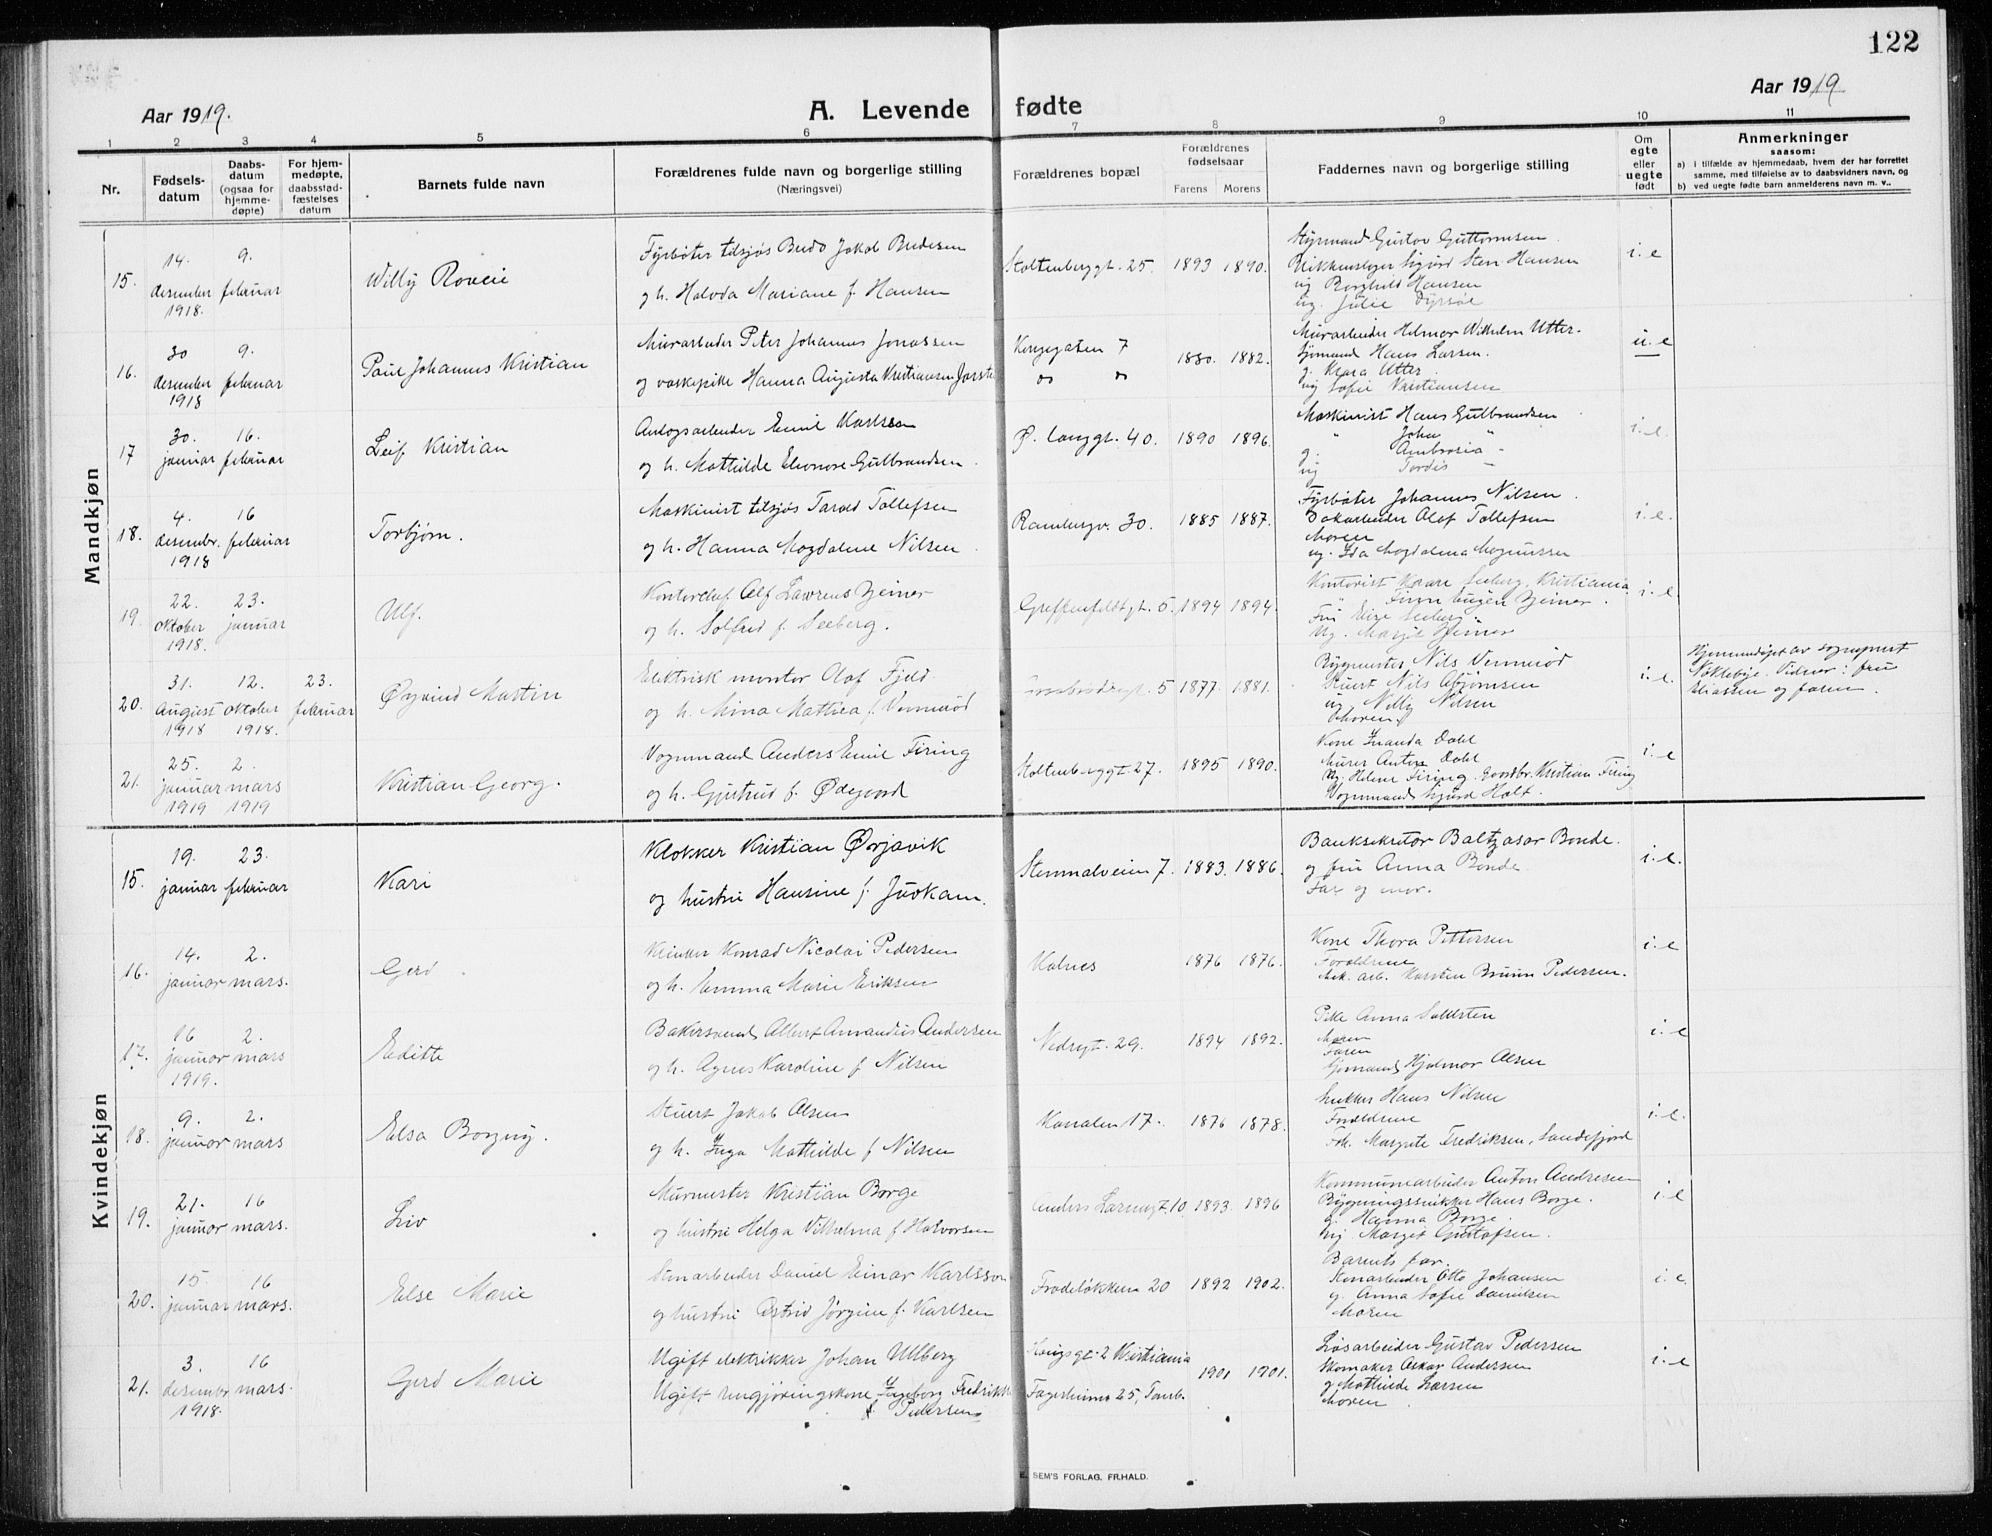 122
Aar 1919.
A. Levende fødte
Aar 1919
1 2 3 4 5 6 7 8 9 10 11
Nr.
Fødsels-
datum
Daabs-
datum
(ogsaa for
hjemme-
døpte)
For hjem-
medøpte,
daabsstad-
fæstelses
datum
Barnets fulde navn
Forældrenes fulde navn og borgerlige stilling
(Næringsvei)
Forældrenes bopæl
Forældrenes
fødselsaar
Farens Morens
Faddernes navn og borgerlige stilling
Om
egte
eller
uegte
født
Anmerkninger
saasom:
a) i tilfælde av hjemmedaab, hvem der har forrettet
samme, med tilføielse av to daabsvidners navn, og
b) ved uegte fødte barn anmelderens navn m. v..
Mandkjøn
15. 14. desember 1918. 9. februar
Willy
Fyrbøter tilsjøs Jakob
og h. Mariane f. Hansen
Stoltenberggt. 25. 1893 1890.
Styrmand Gustav Guttormsen
Sigurd Sten Hansen
ug Borghild Hansen
ug. Julie
i. e
16. 30 desember 1918 9. februar
Paul Johannes Kristian
Murarbeider Peter Johannes Jonassen
og vaskepike Hanna Augusta Kristiansen
Kongegaten 7
" "
1880. 1882.
Murarbeider Wilhelm Utter.
Sjømand Hans Larsen.
g. Klara Utter
ug Sofie Kristiansen
u. e
17 30. januar 16. februar
Leif Kristian
Emil Karlsen
og h. Mathilde Eleonore Gulbrandsen
Ø. langgt. 40. 1890 1896.
Maskinist Hans Gulbrandsen
" John "
g. Ambrosia "
ug Tordis "
i. e.
18. 4. desembr. 1918 16 februar
Torbjørn.
Maskinist tilsjøs Tollefsen
og h. Hanna Magdalene Nilsen
Rambergv. 30. 1885 1887.
Fyrbøter Johannes Nilsen
Olaf Tollefsen
Moren
ug. Ida Magdalena
i. e.
19. 22. oktober 1918. 23. januar
Ulf.
Alf Lawrens
og h. Solfrid f. Seeberg.
5. 1894 1894.
Kontorist Kaare Seeberg, Kristiania
" Finn Eugen
Fru Seeberg
Ug. Margit
i. e.
20. 31. August 1918 12. oktober 1918. 23. februar
Øyvind Martin
Elektrisk montør Olaf Fjeld
og h. Mina Mathea f.
5 1877. 1881.
Bygmester Nils
Stuert Nils
ug Nelly Nilsen
Moren.
i. e.
Hjemmedøpt av sogneprest
Løkkeby. Vidner: fru
Eliassen og faren.
21. 25. januar 1919 2. mars 1919
Kristian Georg.
Vognmand Anders Emil Firing
og h. Gjertrud f. Ødegaard
Stoltenberggt. 27. 1895 1890.
Kone Dahl
Murer Anton Dahl
Ug. Helene Firing. Gaardbr. Kristian Firing
Vognmand Sigurd Holt.
i. e
Kvindekjøn
15. 19. januar 23. februar
Kari
Klokker Kristian Ørjavik
og hustru Hansine f. Juvkam.
Stenmalveien 7. 1883. 1886.
Banksekretær Baltzasar Bonde.
og fru Anna Bonde.
Far og mor.
i. e.
16. 14. januar 2. mars.
Gerd
Konrad Nicolai Pedersen
og h. Emma Marie Eriksen
Kalnes 1876 1876.
Kone Thora Pettersen
Forældrene
Mek. arb. Karsten Bruun Pedersen.
i. e
17. 16 januar 1919. 2. mars
Edith
Bakersvend Albert Andersen
og h. Agnes Karoline f Nilsen
Nedregt. 29. 1894 1892.
Pike Anna
Moren
Faren
Sjømand Hjalmar Olsen
i. e
18. 9. januar 2. mars
Elsa Borgny.
Stuert Jakob Olsen
og h. Inga Mathilde f Nilsen
Kanalen 17. 1876 1878.
Snekker Hans Nilsen
Forældrene
Frk. Margrete Fredriksen, Sandefjord
i. e.
19. 21. januar 16 mars.
Liv
Murmester Kristian Borge
og hustru Helga Vilhelma f Halvorsen
Anders 10. 1893. 1896
Kommunearbeider Anton Andresen
Bygningssnikker Hans Borge.
g. Hanna Borge.
ug Margit Gustafsen.
i. e
20. 15. januar 16 mars.
Else Marie
Stenarbeider Daniel Einar Karlsson
og hustru Astrid Jørgine f. Karlsen
Frodeløkken 20 1892 1902.
Barnets far.
Stenarbeider Otto Johansen
g. Anna Sofie Danielsen
Moren
i. e.
21. 3. desembr 1918. 16 mars.
Gerd Marie
Ugift elektrikker Johan Ulberg
Ugift rengjøringskone Ingeborg
f. Pedersen
Kongsgt. 2 Kristiania
Fagerheims 25, Tønsb.
1901 1901.
Løsarbeider Gustav Pedersen
Skomaker Oskar Andersen
g Mathilde Larsen
Moren
i. e
E. SEM'S FORLAG, FR.HALD.